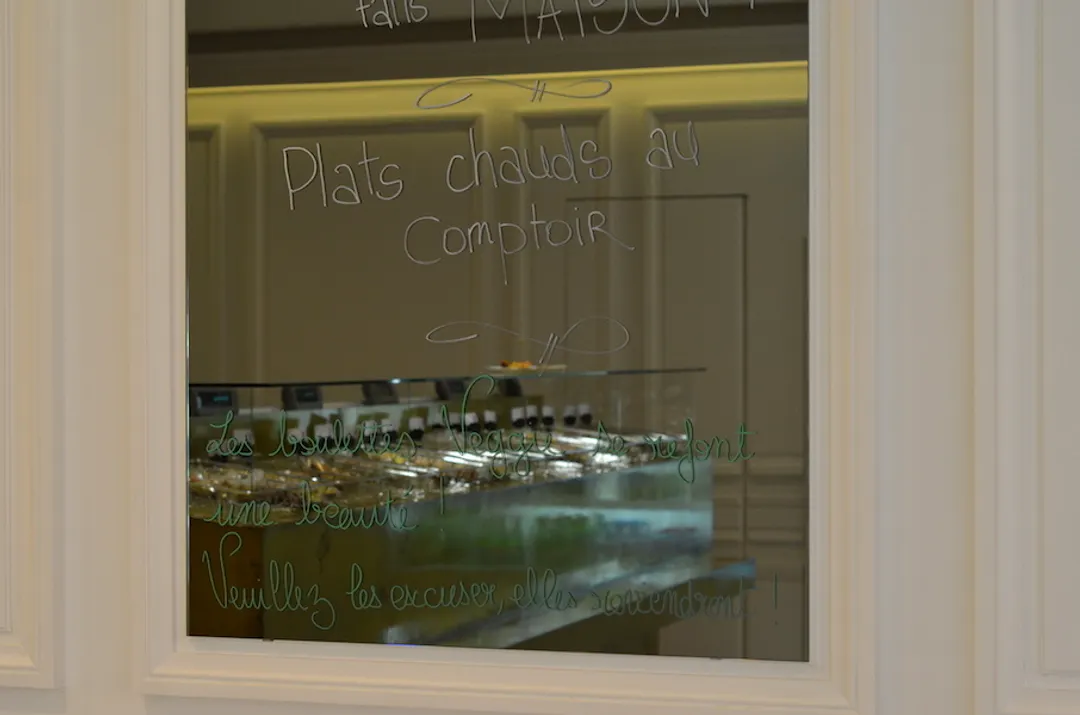 faits MAISON !
Plats chauds au
comptoir
Les boulettes Veggie se refont
une beauté !
Veuillez les excuser, elles reviendront !